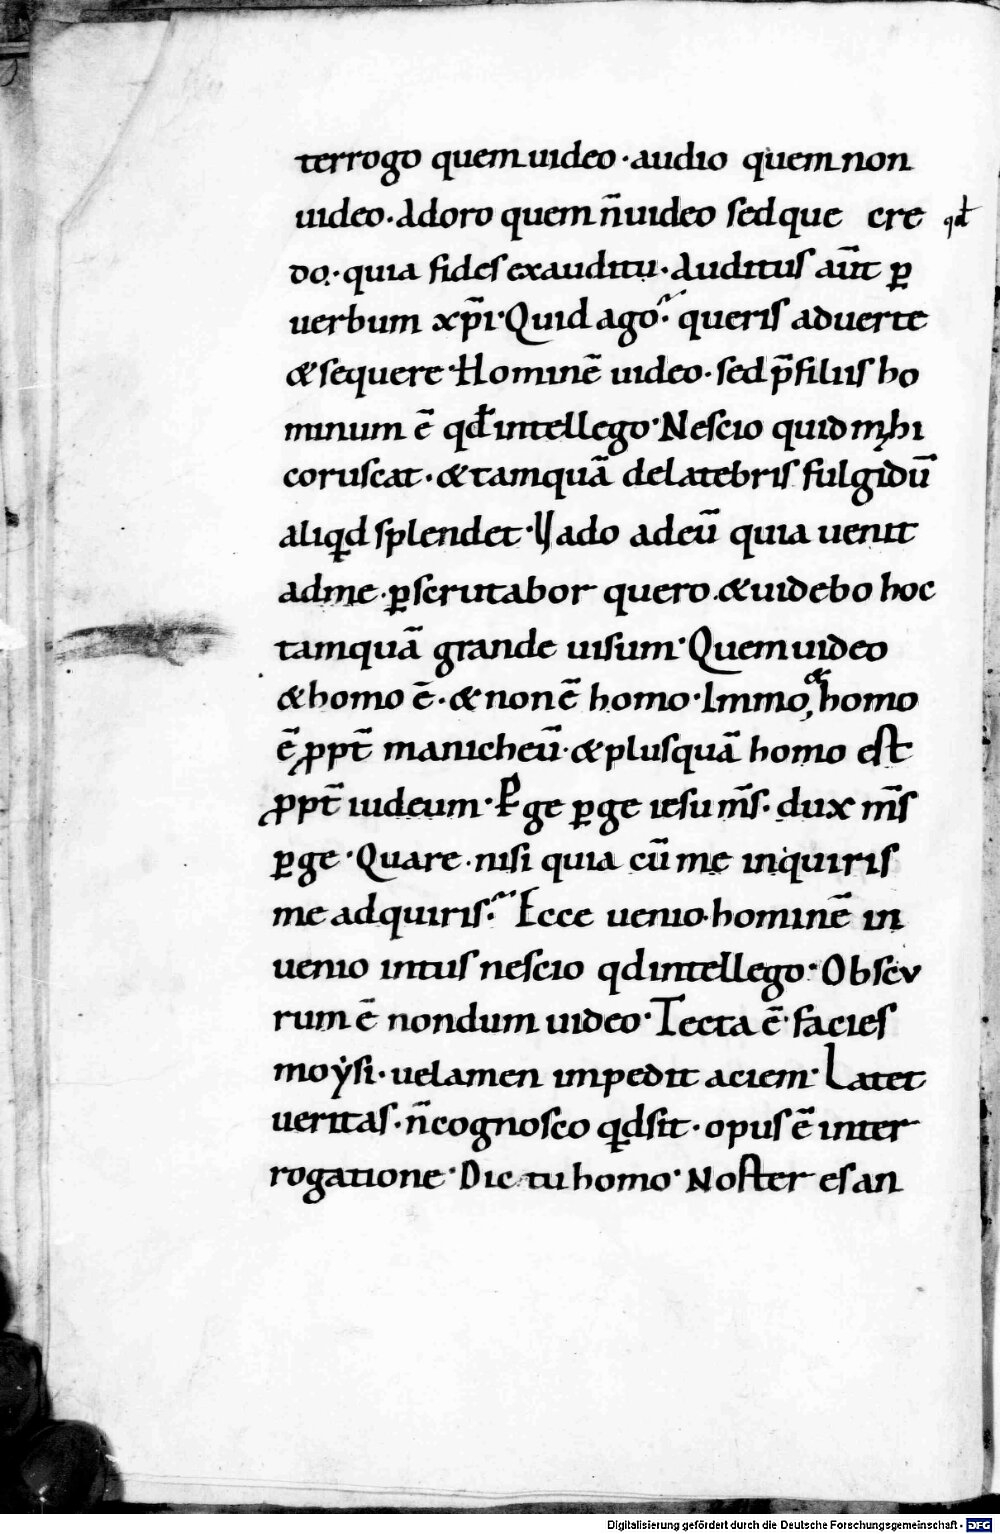 terrogo quem uideo · audio quem non
uideo · Adoro quem n̄ uideo sed que cre qđ
do · quia fides ex auditu · Auditus aūt ꝑ
uerbum xp̄i · Quid ago · queris aduerte
& sequere · Hominē uideo · sed p̄ filius ho
minum ē qđ intellego · Nescio quid mihi
coruscat · & tamquā de latebris fulgidū
aliqd splendet · Vado ad eū quia uenit
ad me · ꝑscrutabor quero · & uidebo hoc
tamquā grande uisum · Quem uideo
& homo ē · & non ē homo · Immo & homo
ē ꝓpt̄ manicheū · & plusquā homo est
ꝓpt̄ iudeum · Ꝑge ꝑge iesu m̄s · dux m̄s
ꝑge · Quare · nisi quia cū me inquiris
me adquiris · Ecce uenio · hominē in
uenio intus nescio qd intellego · Obscu
rum ē nondum uideo · Tecta ē facies
moẏsi · uelamen impedit aciem · Latet
ueritas · n̄ cognosco qd sit · opus ē inter
rogatione · Dic tu homo · Noster es an
Digitalisierung gefördert durch die Deutsche Forschungsgemeinschaft - DFG